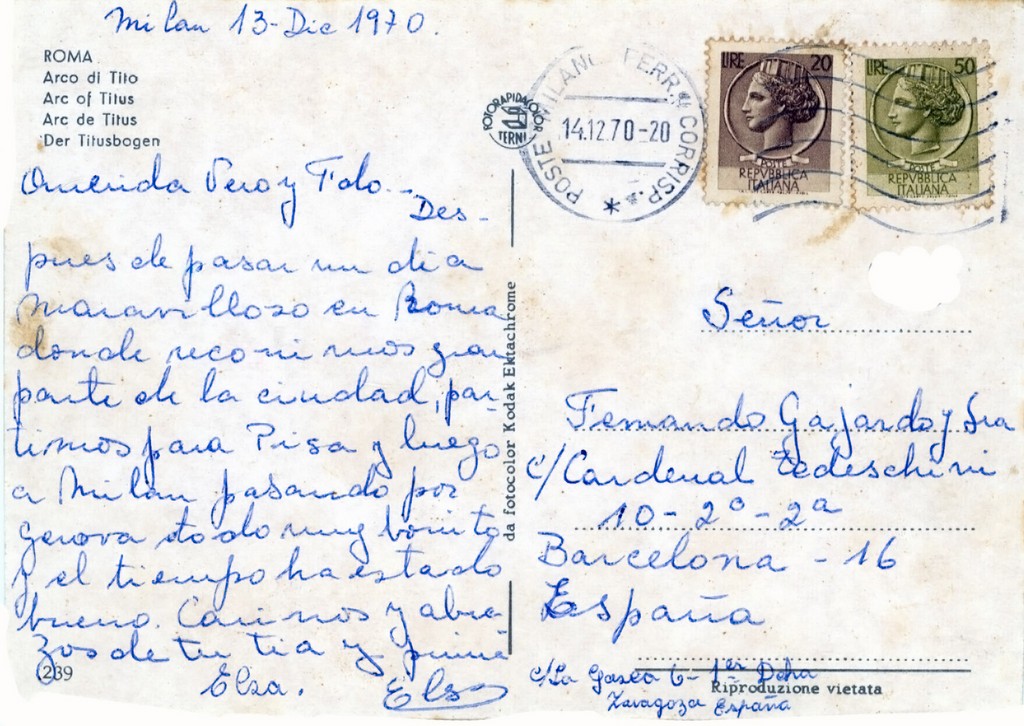 Milan 13-Dic 1970.
ROMA
Arco di Tito
Arc of Titus
Arc de Titus
Der Titusbogen
FOTORAPIDACOLOR
TERNI
POSTE MILANO FERR. CORRISP.
14.12.70-20
LIRE 20
POSTE
REPVBBLICA
ITALIANA
LIRE 50
POSTE
REPVBBLICA
ITALIANA
Querida Vero y Falo.-
Des-
pues de pasar un dia
maravilloso en Roma
donde recorrimos gran
parte de la ciudad, par-
timos para Pisa y luego
a Milan pasando por
Genova todo muy bonito
y el tiempo ha estado
bueno. Cariños y abra-
zos de tu tia y
Elsa. Elsa
239
da fotocolor Kodak Ektachrome
Señor
Fernando Gajardo y Sra
c/Cardenal Tedeschini
10-2º-2ª
Barcelona - 16
España
c/La Gasca 6- 1er Dcha
Zaragoza España
Riproduzione vietata